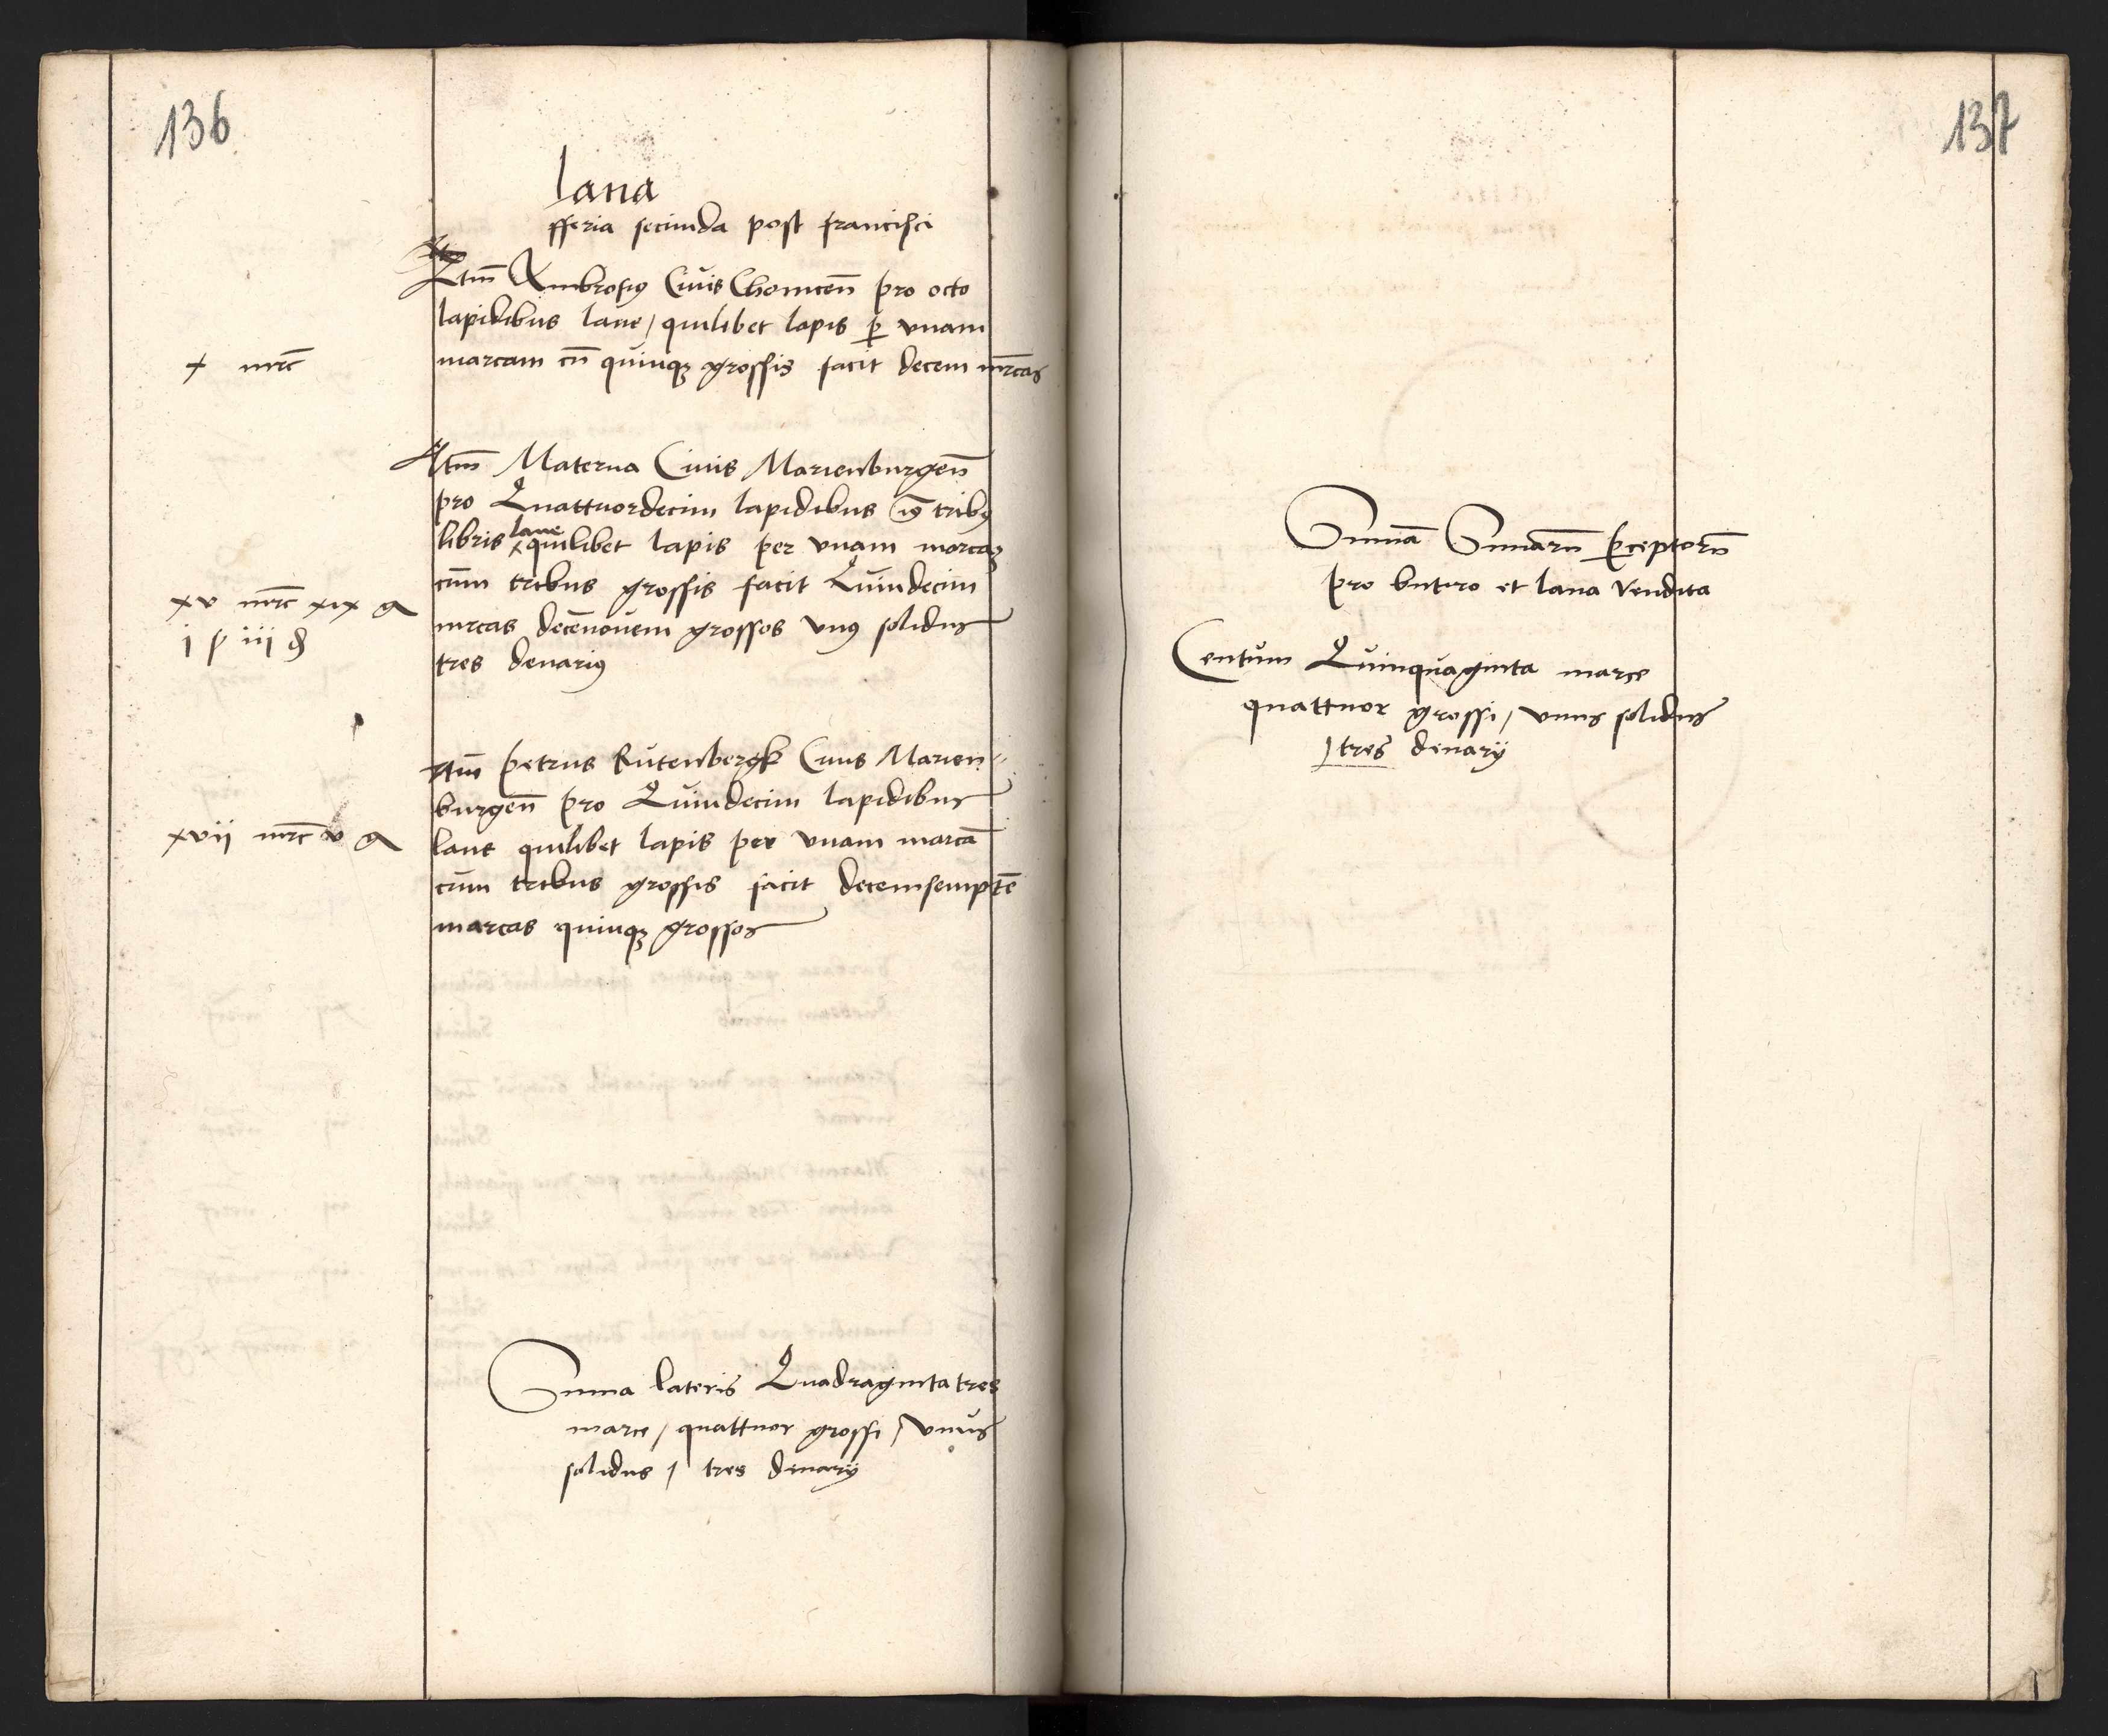 136
lana
fferia secunda post francisci
Itm Ambrosiꝰ Ciuis Chomcen̄ pro octo
lapidibus lane / quilibet lapis ꝑ vnam
x mrc̄ marcam cū quinqꝫ grossis facit decem mr̄cas
Itm̄ Materna Ciuis Marienburgen̄
pro Quattuordecim lapidibus tribꝰ
lane
libris quilibet lapis per vnam marcaꝫ
cum tribus grossis facit Quindecim
xv mrc̄ xix g
mrcas decēnouem grossos vnꝰ solidus
j s iij d
tres denariꝰ
Itm̄ petrus Rutenbergk Ciuis Marien-
burgen̄ pro Quindecim lapidibus
xvij mrc̄ v g lane quilibet lapis per vnam marcā
cum tribus grossis facit decemsemptē
marcas quinqꝫ grossos
Suma lateris Quadraginta tres
marce / quattuor grossi / vnus
solidus / tres denarij
137
Summa Sumarū ꝑceptorū
pro buturo et lana vendita
Centum Quinquaginta marce
quattuor grossi / vnus solidus
/ tres denarij